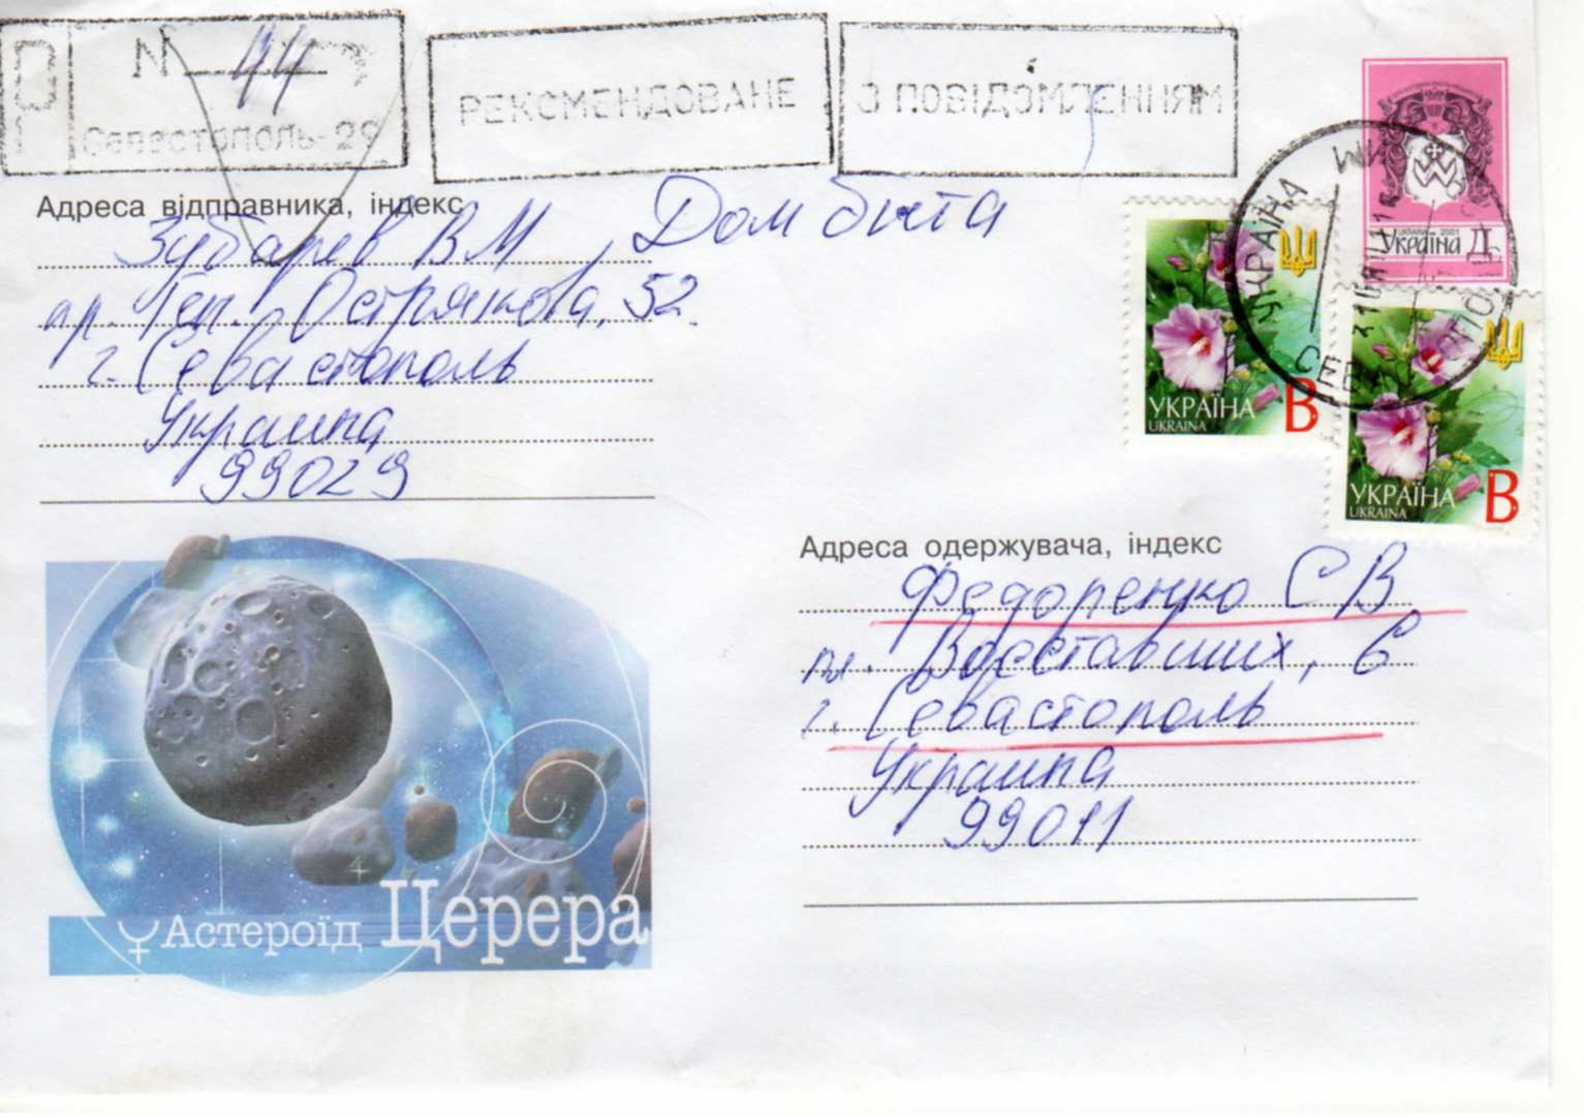 N 44
Севастополь-29
РЕКОМЕНДОВАНЕ
З ПОВІДОМЛЕННЯМ
Адреса відправника, індекс
Зубарев В М, Дом быта
пр. Ген. Острякова, 52
г. Севастополь
Украина
99029
УКРАЇНА
UKRAINA
В
УКРАЇНА
UKRAINA
В
UKRAINE 2001
Україна Д
УКРАЇНА
Адреса одержувача, індекс
Федоренко С В
пл. Восставших, 6
г. Севастополь
Украина
99011
Астероїд Церера